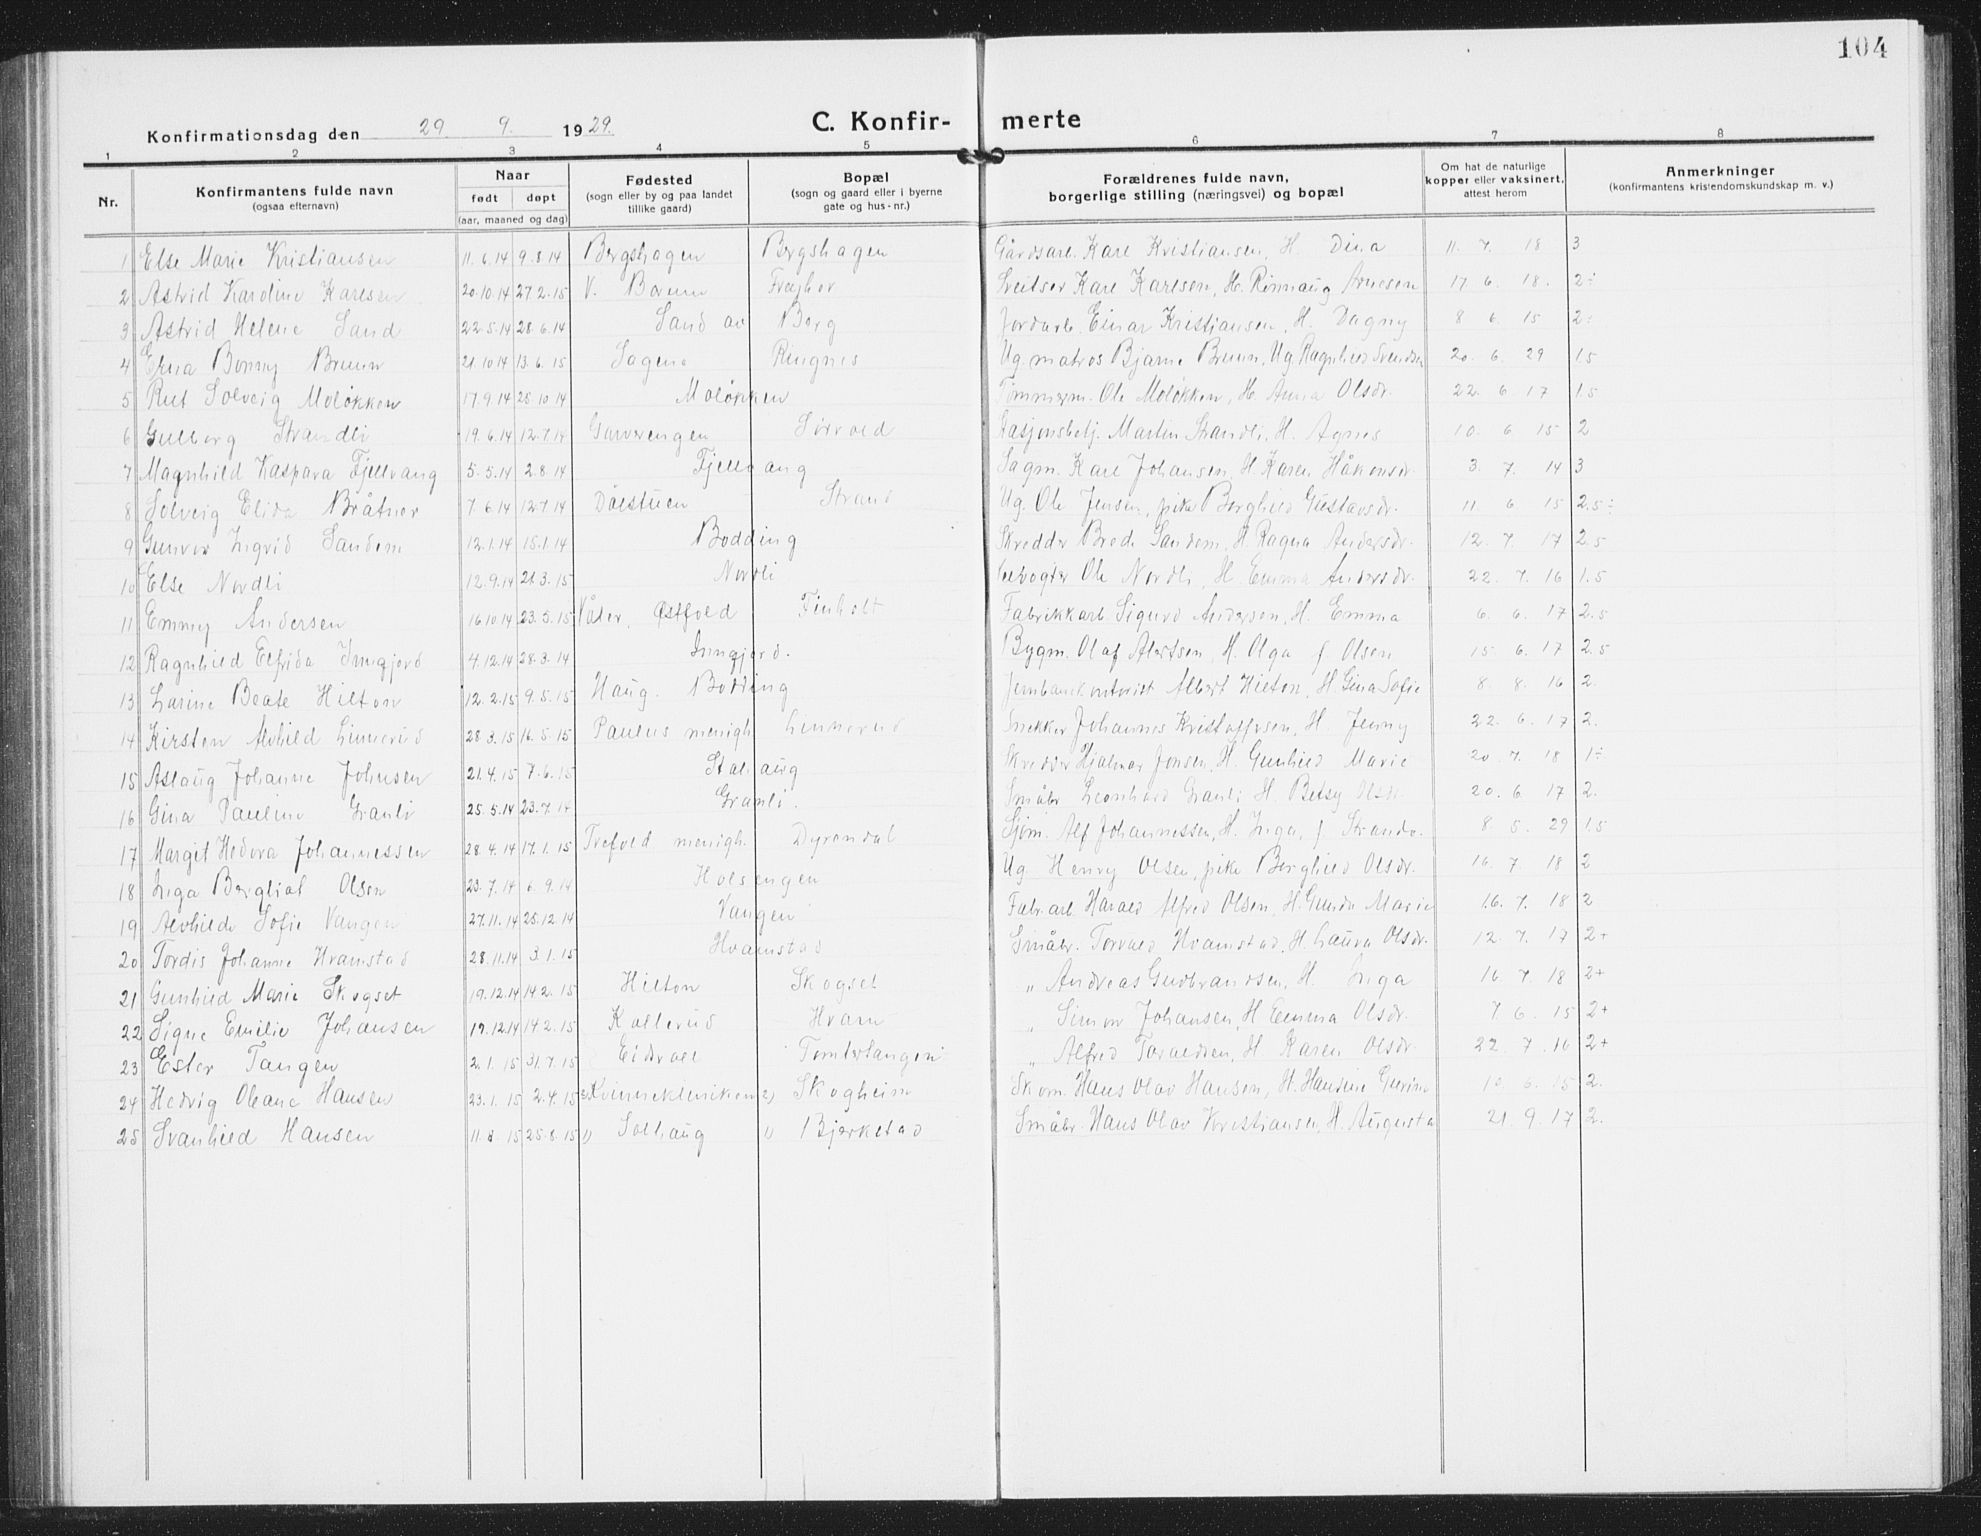 104
Konfirmationsdag den 29 9. 1929.
C. Konfir- merte
1 2 3 4 5 6 7 8
Nr.
Konfirmantens fulde navn
(ogsaa efternavn)
Naar
født døpt
(aar, maaned og dag)
Fødested
(sogn eller by og paa landet
tillike gaard)
Bopæl
(sogn og gaard eller i byerne
gate og hus-nr.)
Forældrenes fulde navn,
borgerlige stilling (næringsvei) og bopæl
Om hat de naturlige
kopper eller vaksinert,
attest herom
Anmerkninger
(konfirmantens kristendomskundskap m. v.)
1 Else Marie Kristiansen 11.6.14 9.8.14 Bergshagen Bergshagen Gårdsarb. Karl Kristiansen, H. Dina 11. 7. 18 3
2 Astrid Karoline Karlsen 20.10.14 27.2.15 V. Bærum Sveitser Karl Karlsen, H. Rinnaug Arnesen 17 6. 18. 2÷
3 Astrid Helene Sand 22.5.14 28.6.14 Sand av Berg Jordarb. Einar Kristiansen, H. Dagny 8 6. 15 2÷
4 Erna Bonny Bruun 21.10.14 13.6.15 Sagene Ringnes Ug. matros Bjarne Bruun, Ug Ragnhild Svendsen 20. 6. 29 1.5
5 Rut Solveig Moløkken 17.9.14 28.10.14 Moløkken Tømmerm. Ole Moløkken, H. Anna Olsdr. 22. 6. 17 1.5
6 Gulborg Strandli 19.6.14 12.7.14 Garverengen Sørvold Stasjonsbetj. Martin Strandli, H. Agnes 10. 6 15 2
7 Magnhild Kaspara Fjellvang 5.5.14 2.8.14 Fjellvang Sagm. Karl Johansen, H. Karen Håkonsdr. 3. 7. 14 3
8 Solveig Elida Bråtner 7.6.14 12.7.14 Dølstuen Strand Ug. Ole Jensen, pike Borghild Gustavsdr. 11 6 15 2.5÷
9 Gunvor Ingrid Sandem 12.1.14 15.1.14 Bødding Skredder Brede Sandem, H. Ragna Andersdr. 12. 7. 17 2.5
10 Else Nordli 12.9.14 21.3.15 Nordli Ole Nordli, H. Emma Andersdr. 22. 7. 16 1.5
11 Emmy Andersen 16.10.14 23.5.15 Våler, Østfold Finholt Fabrikkarb. Sigurd Andersen, H. Emma 6. 6. 17 2.5
12 Ragnhild Elfrida Inngjerd 4.12.14 28.3.14 Inngjerd. Bygm. Olaf Alertsen, H. Olga f. Olsen 15 6. 17 2.5
13 Larine Beate Hilton 12.2.15 9.5.15 Haug. Bødding Jernbanekontorist Albert Hilton, H. Gina Sofie 8. 8. 16 2.
14 Kirsten Alvhild Linnerud 28.3.15 16.5.15 Paulus menigh. Linnerud Snekker Johannes Kristoffersen, H. Jenny 22. 6. 17 2.
15 Aslaug Johanne Johnsen 21.4.15 7.6.15 Stalhaug Skredder Hjalmar Jonsen, H. Gunhild Marie 20. 7. 18 1÷
16 Gina Pauline Granli 25.5.14 23.7.14 Granli. Småbr. Leonhard Granli H. Betsy Olsdr. 20. 6 17 2.
17 Margit Hedora Johannessen 28.4.14 17.1.15 Trefold. menigh. Dyrendal Sjøm. Alf Johannessen, H. Inga, f. Strande. 8. 5. 29 1.5
18 Inga Bergliot Olsen 23.7.14 6.9.14 Holsengen Ug. Henry Olsen, pike Borghild Olsdr. 16. 7 18 2
19 Alvhilde Sofie Vangen 27.11.14 25.12.14 Vangen Fabr.arb. Harald Alfred Olsen, H. Gunda Marie 16. 7. 18 2
20 Tordis Johanne Hvamstad 28.11.14 3.1.15 Hvamstad Småbr. Torvald Hvamstad, H. Laura Olsdr. 12. 7. 17 2+
21 Gunhild Marie Skogset 19.12.14 14.2.15 Hilton Skogset " Andreas Gudbrandsen, H. Inga 16 7. 18 2+
22 Signe Emilie Johansen 19.12.14 14.2.15 Kollerud Hvam " Simon Johansen, H Emma Olsdr. 7. 6. 15 2+
23 Ester Tangen 2.1.15 31.7.15 Eidsvoll Tømtetangen " Alfred Toraldsen, H Karen Olsdr. 22. 7. 16 2+
24 Hedvig Oleane Hansen 23.1.15 2.4.15 Kvinneklinikken " Skogheim Skom. Hans Olav Hansen, H. Hansine Gurine 10. 6. 15 2.
25 Svanhild Hansen 11.8.15 25.8.15 " Solhaug " Bjerkstad Småbr. Hans Olav Kristiansen, H. Augusta 21. 9. 17 2.